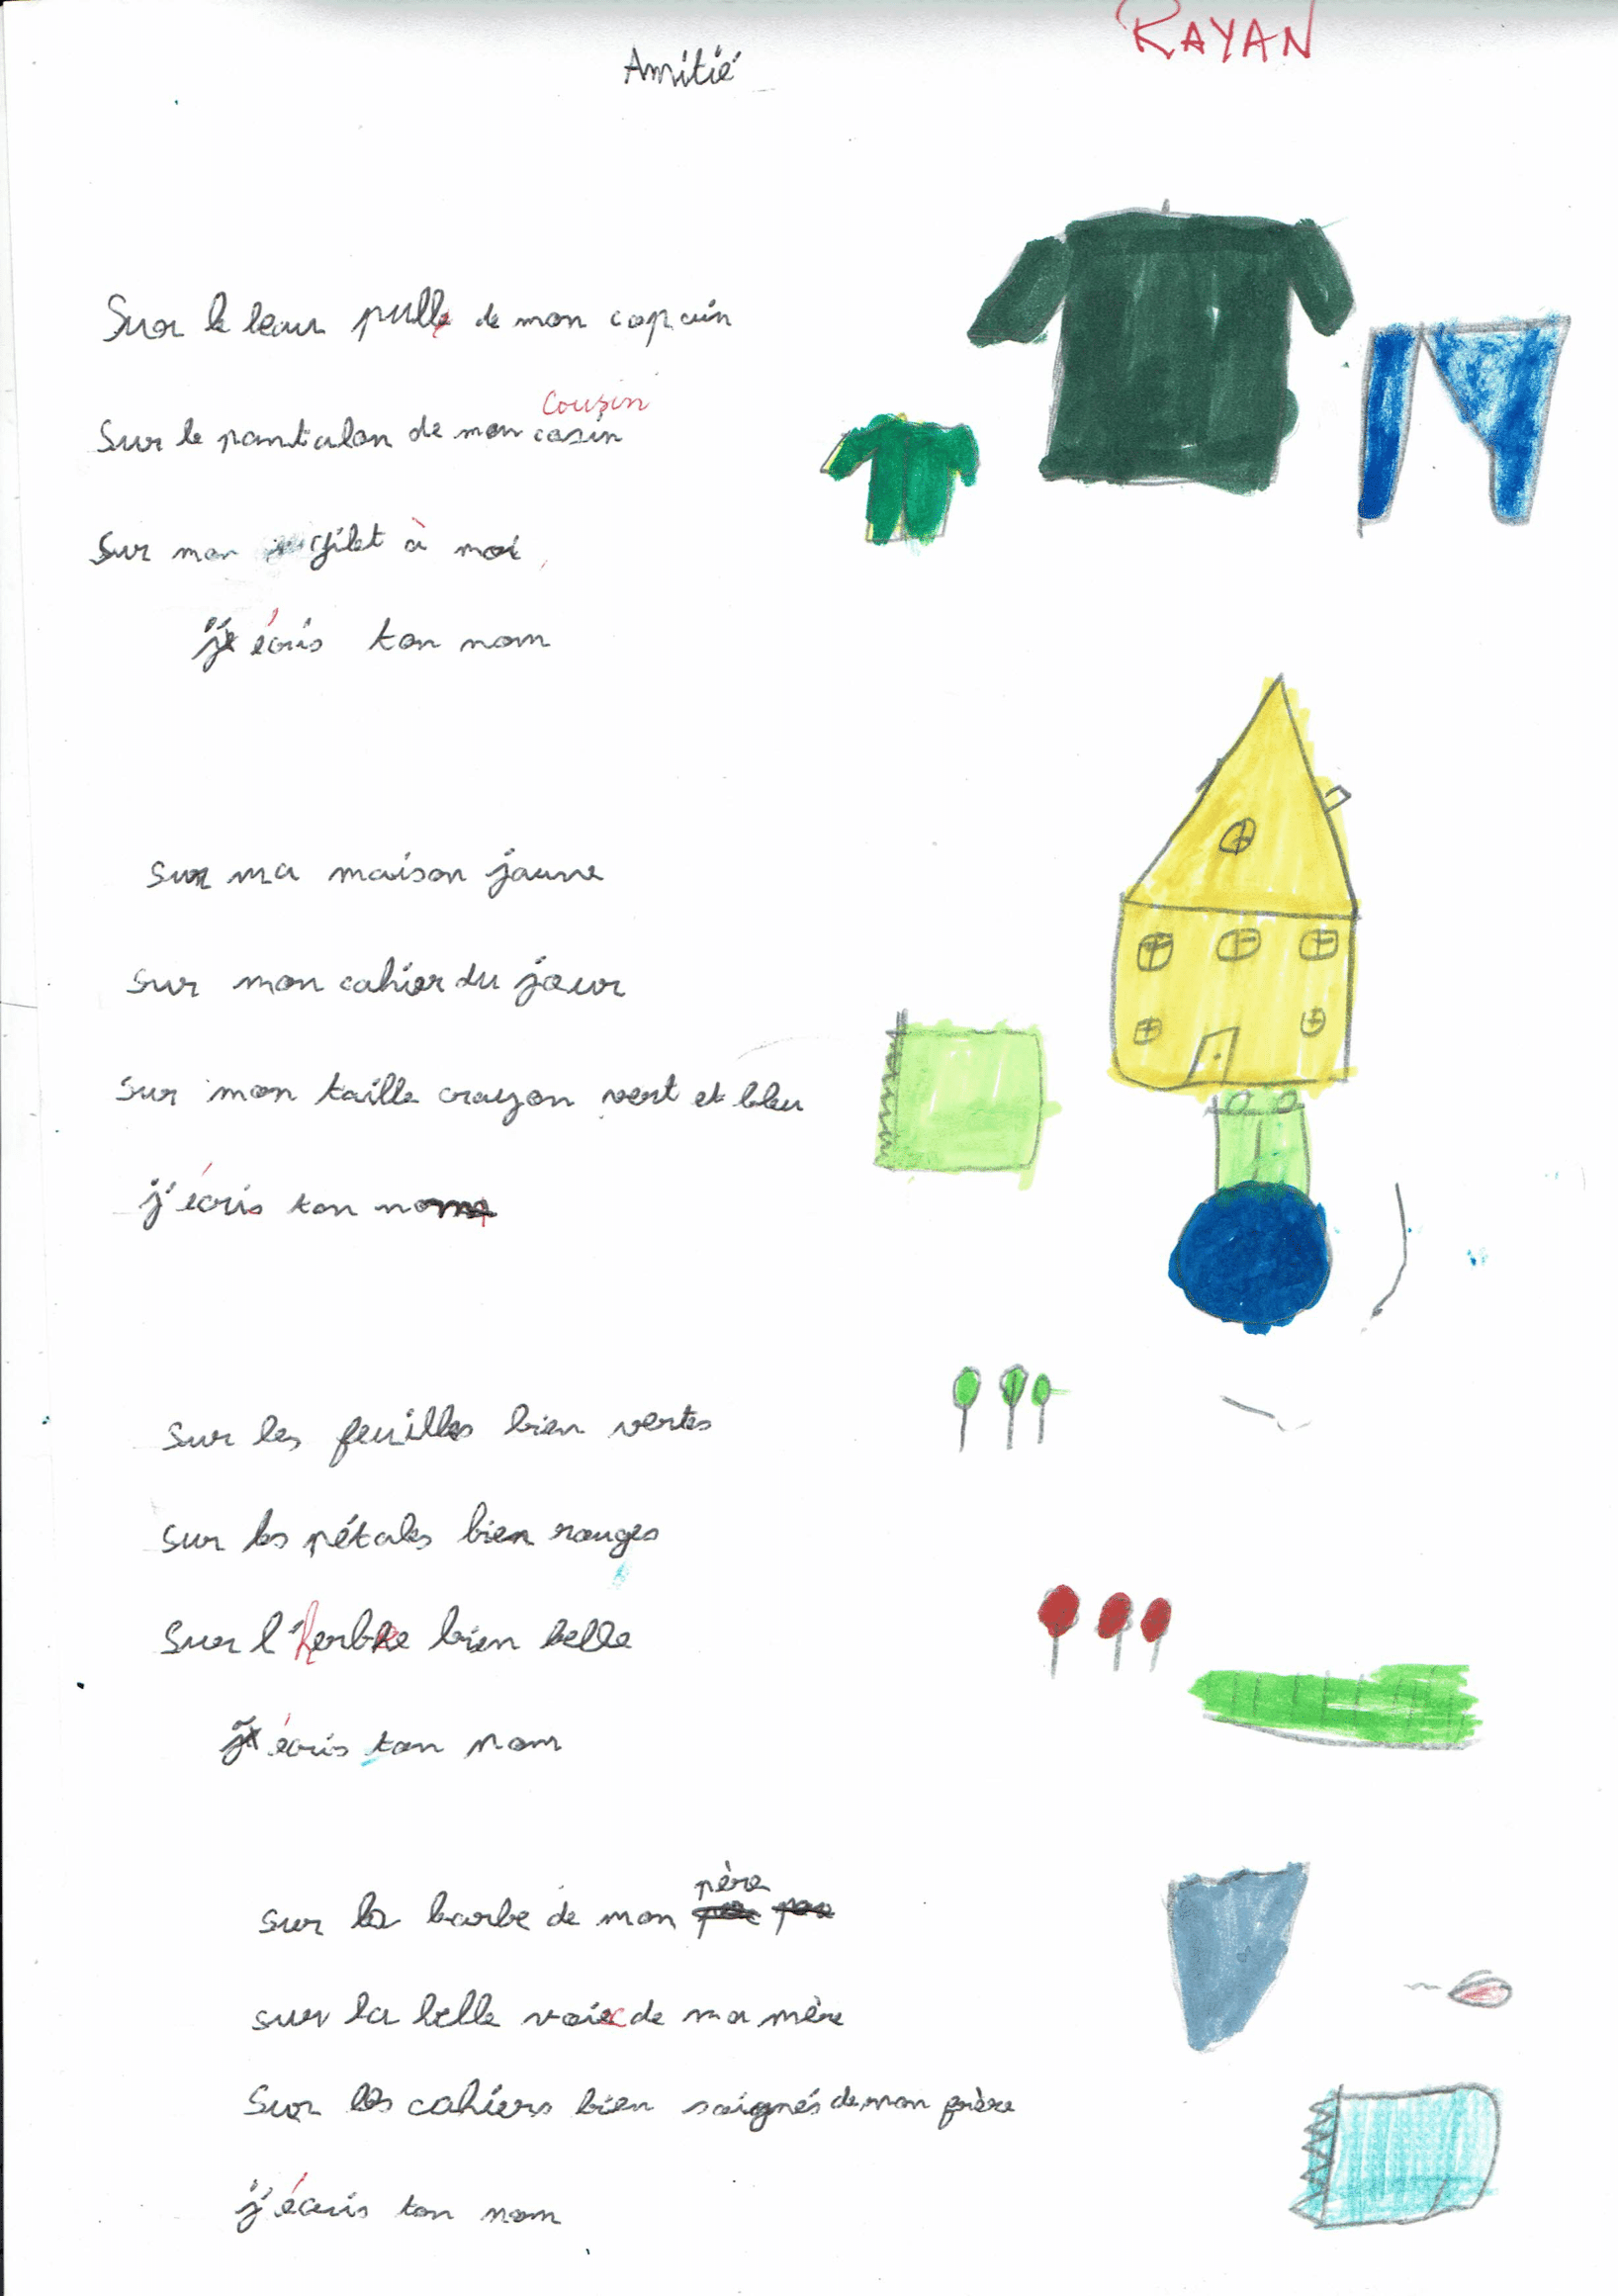 RAYAN
Amitié
Sur le beau pull de mon copain
cousin
Sur le pantalon de mon cosin
Sur mon gilet à moi,
j'écris ton nom
sur ma maison jaune
sur mon cahier du jour
sur mon taille crayon vert et bleu
j'écris ton nom
sur les feuilles bien vertes
sur les pétales bien rouges
sur l'herbe bien belle
j'écris ton nom
père
sur la barbe de mon
sur la belle voix de ma mère
Sur les cahiers bien soignés de mon frère
j'écris ton nom